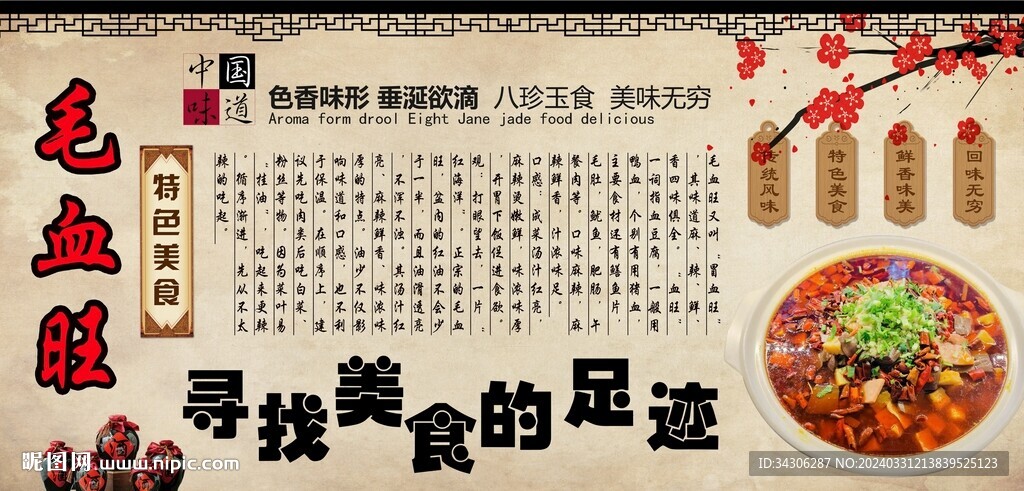 毛血旺
特色美食
中国
味道
色香味形 垂涎欲滴 八珍玉食 美味无穷
Aroma form drool Eight Jane jade food delicious
毛血旺又叫：冒血旺：
其味道麻、辣、鲜、
香四味俱全。血旺：
一词指血豆腐，一般用
鸭血，个别有用猪血，
主要食材还有鳝鱼片
毛肚 鱿鱼 肥肠 午
餐肉等。口味麻辣 麻
辣鲜香，汁浓味足。
口感：成菜汤汁红亮，
麻辣烫嫩鲜，味浓味厚
，开胃下饭促进食欲。
观：打眼望去，一片：
红海洋：。正宗的毛血
旺，盆内的红油不会少
于一半，而且油滑透亮
，不浑不浊。其汤汁红
亮、麻辣鲜香、味浓味
厚的特点。油少不仅影
响味道和口感，也不利
于保温。在顺序上，建
议先吃肉类后吃白菜、
粉丝等物。因为菜叶易
：挂油：，吃起来更辣
。循序渐进，先从不太
辣的吃起。
传统风味
特色美食
鲜香味美
回味无穷
寻找美食的足迹
昵图网 www.nipic.com
ID:34306287 NO:20240331213839525123